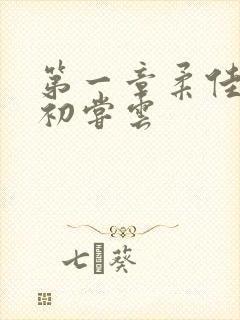 第一章柔佳
初尝云
七葵